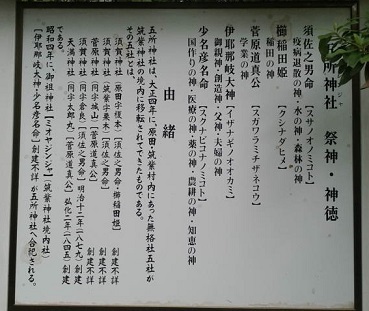 所神社 祭神・神徳
須佐之男命【スサノオノミコト】
疫病退散の神・水の神・森林の神
櫛稲田姫【クシナダヒメ】
稲田の神
菅原道真公【スガワラミチザネコウ】
学業の神
伊耶那岐大神【イザナギノオオカミ】
御親神・創造神・父神・夫婦の神
少名彦名命【スクナビコナノミコト】
国作りの神・医療の神・薬の神・農耕の神・知恵の神
由緒
五所神社は、大正四年に、原田・筑紫村内にあった無格社五社が
筑紫神社の境内に移転されてきたものである。
その五社とは、
須賀神社【原田字榎本】【須佐之男命・櫛稲田姫】 創建不詳
須賀神社【筑紫字栗木】【須佐之男命】 創建不詳
菅原神社【同字城山】【菅原道真公】 創建不詳
須賀神社【同字倉良】【須佐之男命】明治十二年(一八七九)創建
天満神社【同字太郎丸】【菅原道真公】弘化二年(一八四五)創建
である。
昭和四年に、御祖神社【ミオヤジンジャ】(筑紫神社境内社)
【伊耶那岐大神・少名彦名命】創建不詳 が五所神社へ合祀される。